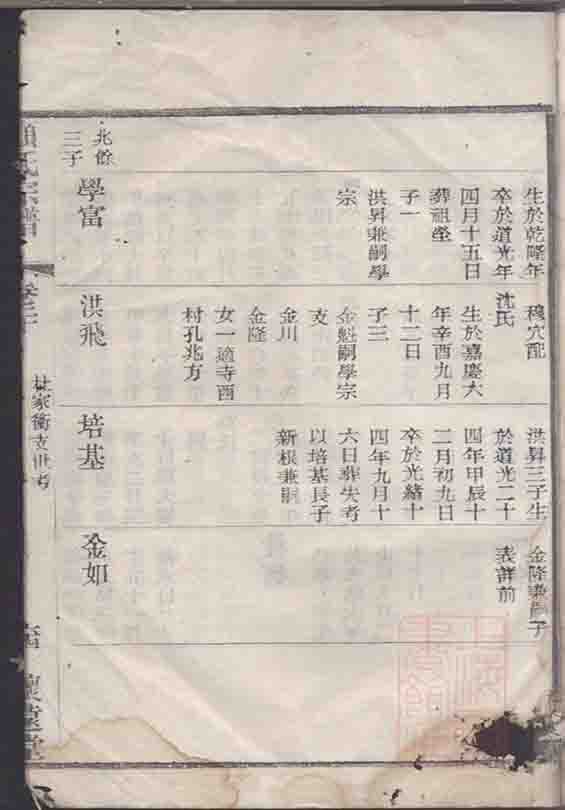 生於乾隆年
卒於道光年
四月十五日
葬祖塋
子一
洪昇兼嗣學
宗
北餘
三子
學富
穆穴配
沈氏
生於嘉慶六
年辛酉九月
十三日
子三
金魁嗣學宗
支
金川
金隆
女一適寺西
村孔兆方
洪飛
洪昇三子生
於道光二十
四年甲辰十
二月初九日
卒於光緒十
四年九月十
六日葬失考
以培基長子
新根兼嗣
培基
金隆兼嗣子
表詳前
金如
氏宗譜
家衖支世考